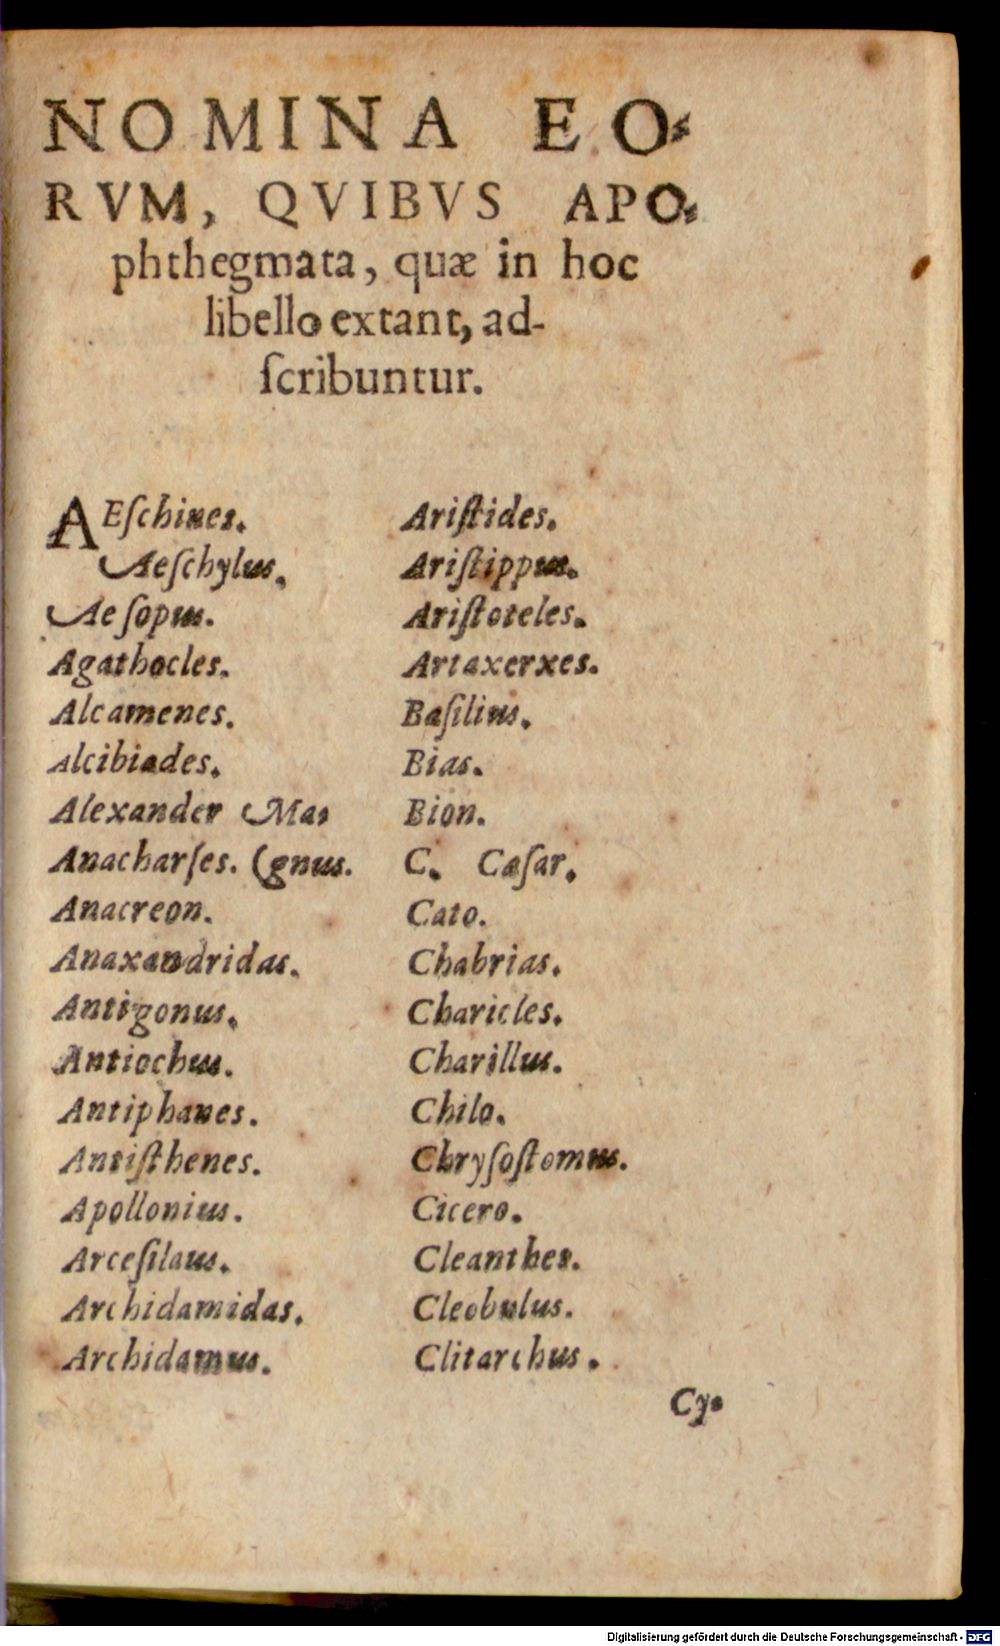 NOMINA EO-
RVM, QVIBVS APO-
phthegmata, quæ in hoc
libello extant, ad-
ſcribuntur.
AEſchines.
Aeſchylus.
Aeſopus.
Agathocles.
Alcamenes.
Alcibiades.
Alexander Ma-
Anacharſes. (gnus.
Anacreon.
Anaxandridas.
Antigonus.
Antiochus.
Antiphanes.
Antiſthenes.
Apollonius.
Arceſilaus.
Archidamidas.
Archidamus.
Ariſtides.
Ariſtippus.
Ariſtoteles.
Artaxerxes.
Baſilius.
Bias.
Bion.
C. Cæſar.
Cato.
Chabrias.
Charicles.
Charillus.
Chilo.
Chryſoſtomus.
Cicero.
Cleanthes.
Cleobulus.
Clitarchus.
Cy-
Digitalisierung gefördert durch die Deutsche Forschungsgemeinschaft - DFG